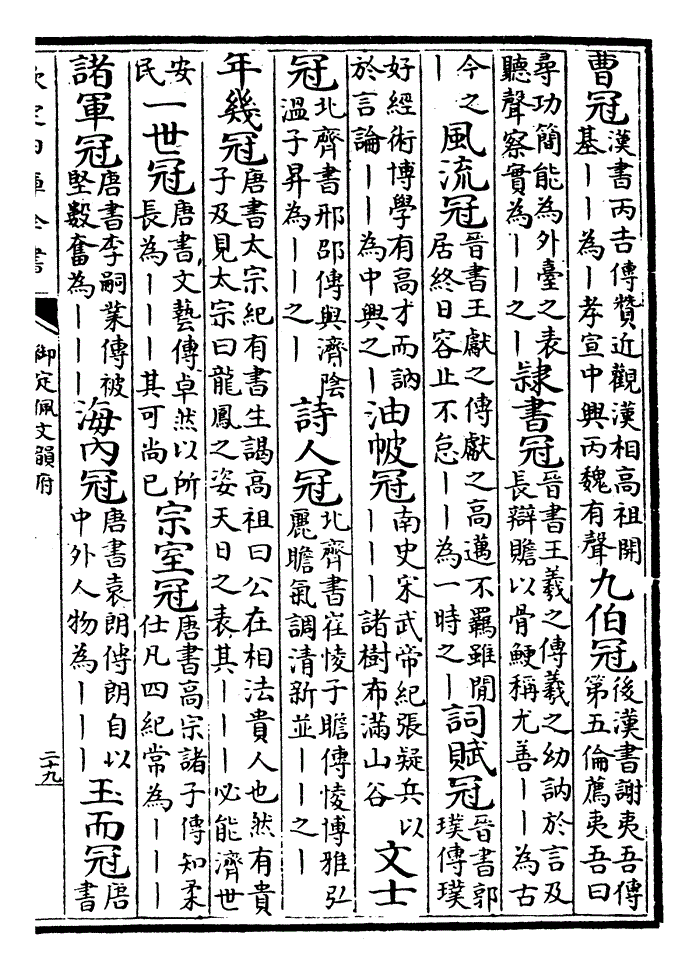 曹冠漢書丙吉傳贊近觀漢相高祖開基｜｜為｜孝宣中興丙魏有聲九伯冠後漢書謝夷吾傳第五倫薦夷吾曰
尋功簡能為外臺之表聽聲察實為｜｜之｜隸書冠晉書王羲之傳羲之幼訥於言及長辯贍以骨鯁稱尤善｜｜為古
今之｜風流冠晉書王獻之傳獻之高邁不羈雖閒居終日容止不怠｜｜為一時之｜詞賦冠晉書郭璞傳璞
好經術博學有高才而訥於言論｜｜為中興之｜油帔冠南史宋武帝紀張疑兵以｜｜｜諸樹布滿山谷文士
冠北齊書邢邵傳與濟陰溫子昇為｜｜之｜詩人冠北齊書崔㥄子瞻傳㥄博雅弘麗瞻氣調清新並｜｜之｜
年幾冠唐書太宗紀有書生謁高祖曰公在相法貴人也然有貴子及見太宗曰龍鳳之姿天日之表其｜｜｜必能濟世
安民一世冠唐書文藝傳卓然以所長為｜｜｜其可尚已宗室冠唐書高宗諸子傳知柔仕凡四紀常為｜｜｜
諸軍冠唐書李嗣業傳被堅數奮為｜｜｜海內冠唐書袁朗傳朗自以中外人物為｜｜｜玉而冠唐書
御定佩文韻府
二十九